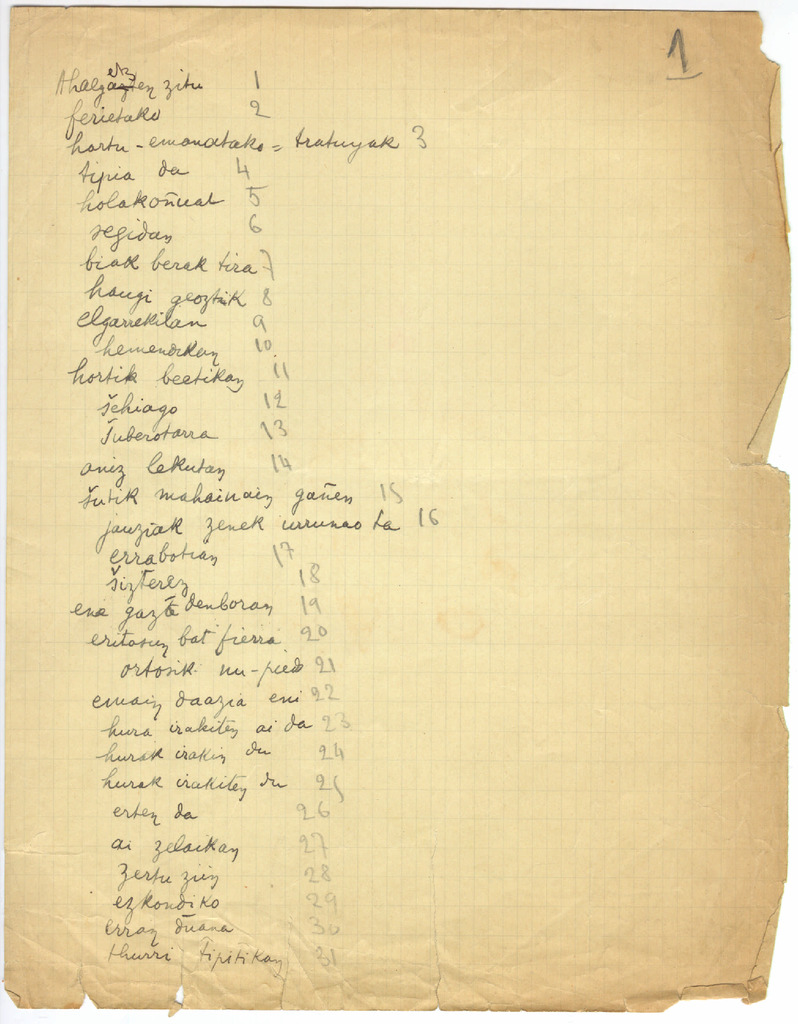 1
Ahalgerzten zitu 1
ferietako 2
hartu-emanatako = tratuyak 3
tipia da 4
holakoñuat 5
segidan 6
biak berak tira 7
haugi geoztik 8
elgarrekilan 9
hemendikan 10
hortik beetikan 11
šehiago 12
Šuberotarra 13
aniz lekutan 14
šutik mahainain gañen 15
jauziak zenek urrunao ta 16
errabotian 17
šizterez 18
ene gazte denboran 19
eritasun bat fierra 20
ortosik nu-pieds 21
emain daazia eni 22
hura irakiten ai da 23
hurak irakin du 24
hurak irakiten du 25
erten da 26
ai zelaikan 27
zertu ziin 28
ezkondiko 29
erran duana 30
thurri tipitikan 31